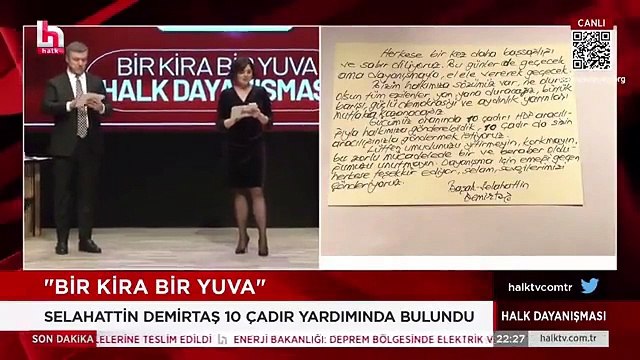 halk
BİR KİRA BİR YUVA
HALK DAYANIŞMASI
CANLI
Herkese bir kez daha başsağlığı
ve sabır diliyoruz. Bu günler de geçecek
ama dayanışmayla, el ele vererek geçecek.
Bizim halkımıza sözümüz var, ne olursa
olsun tüm ezilenler, yan yana duracağız, büyük
barışı, güçlü demokrasiyi ve aydınlık yarınları
mutlaka kazanacağız.
Gücümüz oranında 10 çadırı HDP aracılı-
ğıyla halkımıza gönderebildik, 10 çadır da sizin
aracılığınızla göndermek istiyoruz.
Lütfen umudunuzu yitirmeyin, korkmayın,
bu zorlu mücadelede bir ve beraber oldu-
ğumuzu unutmayın. Dayanışma için emeği geçen
herkese teşekkür ediyor, selam, sevgilerimizi
gönderiyoruz.
Başak-Selahattin
Demirtaş
"BİR KİRA BİR YUVA"
halktvcomtr
SELAHATTİN DEMİRTAŞ 10 ÇADIR YARDIMINDA BULUNDU
HALK DAYANIŞMASI
SON DAKİKA
ELERİNE TESLİM EDİLDİ
ENERJİ BAKANLIĞI: DEPREM BÖLGESİNDE ELEKTRİK V
22:27
halktv.com.tr